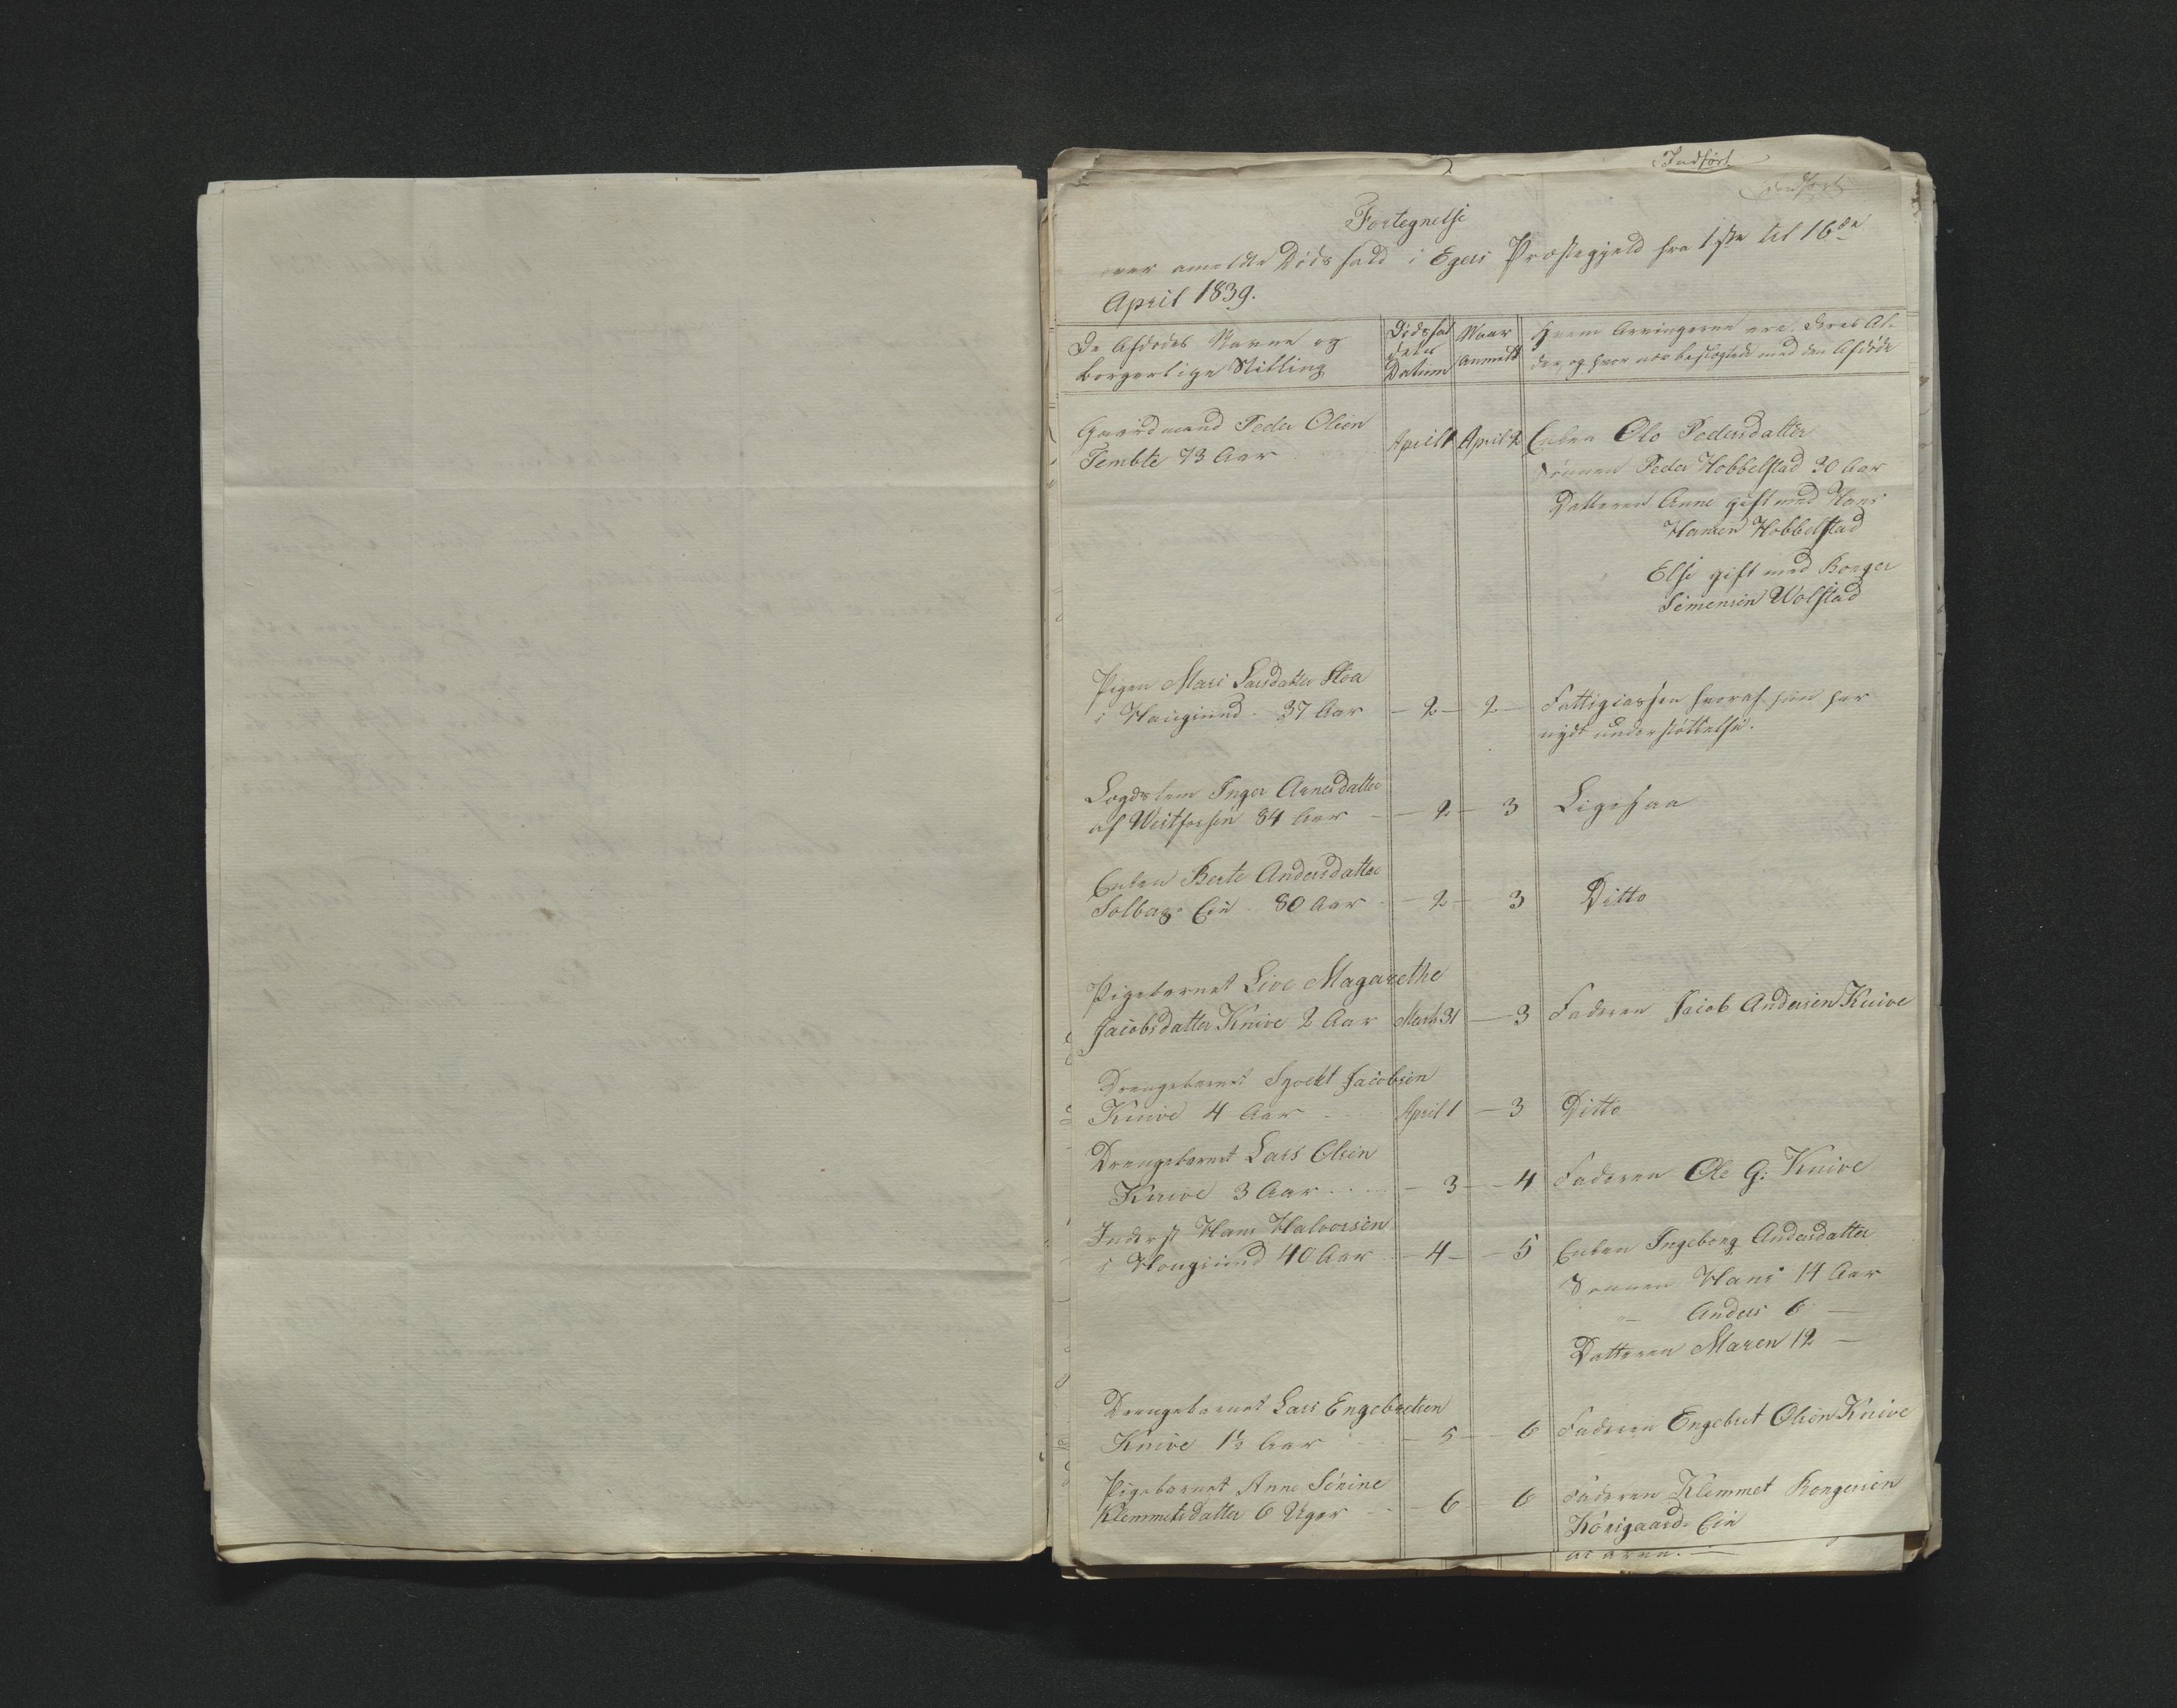 Indført
Fortegnelse
over anmeldte Dødsfald i Egers Præstegjeld fra 1ste til 16de
April 1839.
De Afdødes Navne og
borgerlige Stilling
Dødsfal
dets
Datum
Naar
Anmeldt
Hvem Arvingerne ere, deres Al-
der, og hvor nær beslægtede med den Afdøde
Gaardmand Peder Olsen
Tembte 73 Aar
April 1
April 2
Enken Olo Pedersdatter
Sønnen Peder Hobbelstad 30 Aar
Datteren Anne gift med Hans
Hansen Hobbelstad
Else gift med Borger
Simensen Wolstad
Pigen Mari Larsdatter Stoa
i Haugsund - 37 Aar
- 2 -
2 -
Fattigcassen hvoraf hun har
nydt understøttelse.
Lægdslem Inger Arnesdatter
af Westfossen 84 Aar -
- 2 -
3
Ligesaa
Enken Berte Andersdatter
Solberg Eie - 80 Aar
- 2 -
3
Ditto
Pigebarnet Live Magarethe
Jacobsdatter Knive 2 Aar
Marts 31
- 3
Faderen Jacob Andersen Knive
Drengebarnet Syvert Jacobsen
Knive 4 Aar
April 1
- 3
Ditto
Drengebarnet Lars Olsen
Knive 3 Aar
- 3 -
- 4
Faderen Ole G: Knive
Inderst Hans Halvorsen
i Hougsund 40 Aar
- 4 -
- 5
Enken Ingeborg Andersdatter
Sønnen Hans 14 Aar
- Anders 6 -
Datteren Maren 12 -
Drengebarnet Lars Engebretsen
Knive 1½ Aar
- 5 -
- 6
Faderen Engebret Olsen Knive
Pigebarnet Anne Sørine
Klemmetsdatter 6 Uger
- 6
6
Faderen Klemmet Borgersen
Korsgaards Eie